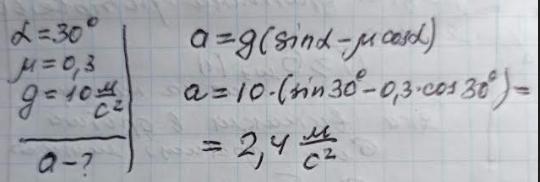 α=30°
μ=0,3
g=10 м/с²
a-?
a=g(sinα-μcosα)
a=10·(sin30°-0,3·cos30°)=
=2,4 м/с²